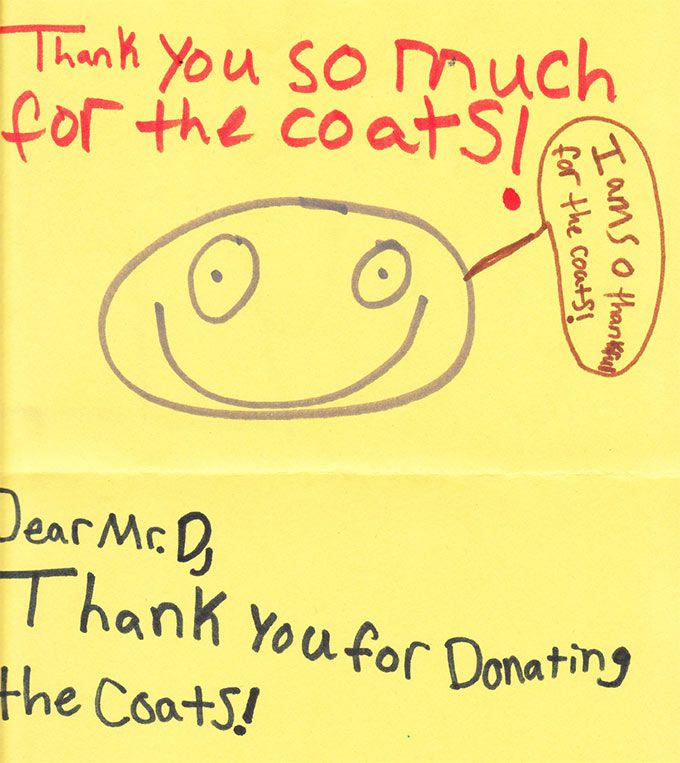 Thank You so much
for the coats!
I am so thankful
for the coats!
Dear Mr. D,
Thank You for Donating
the Coats!